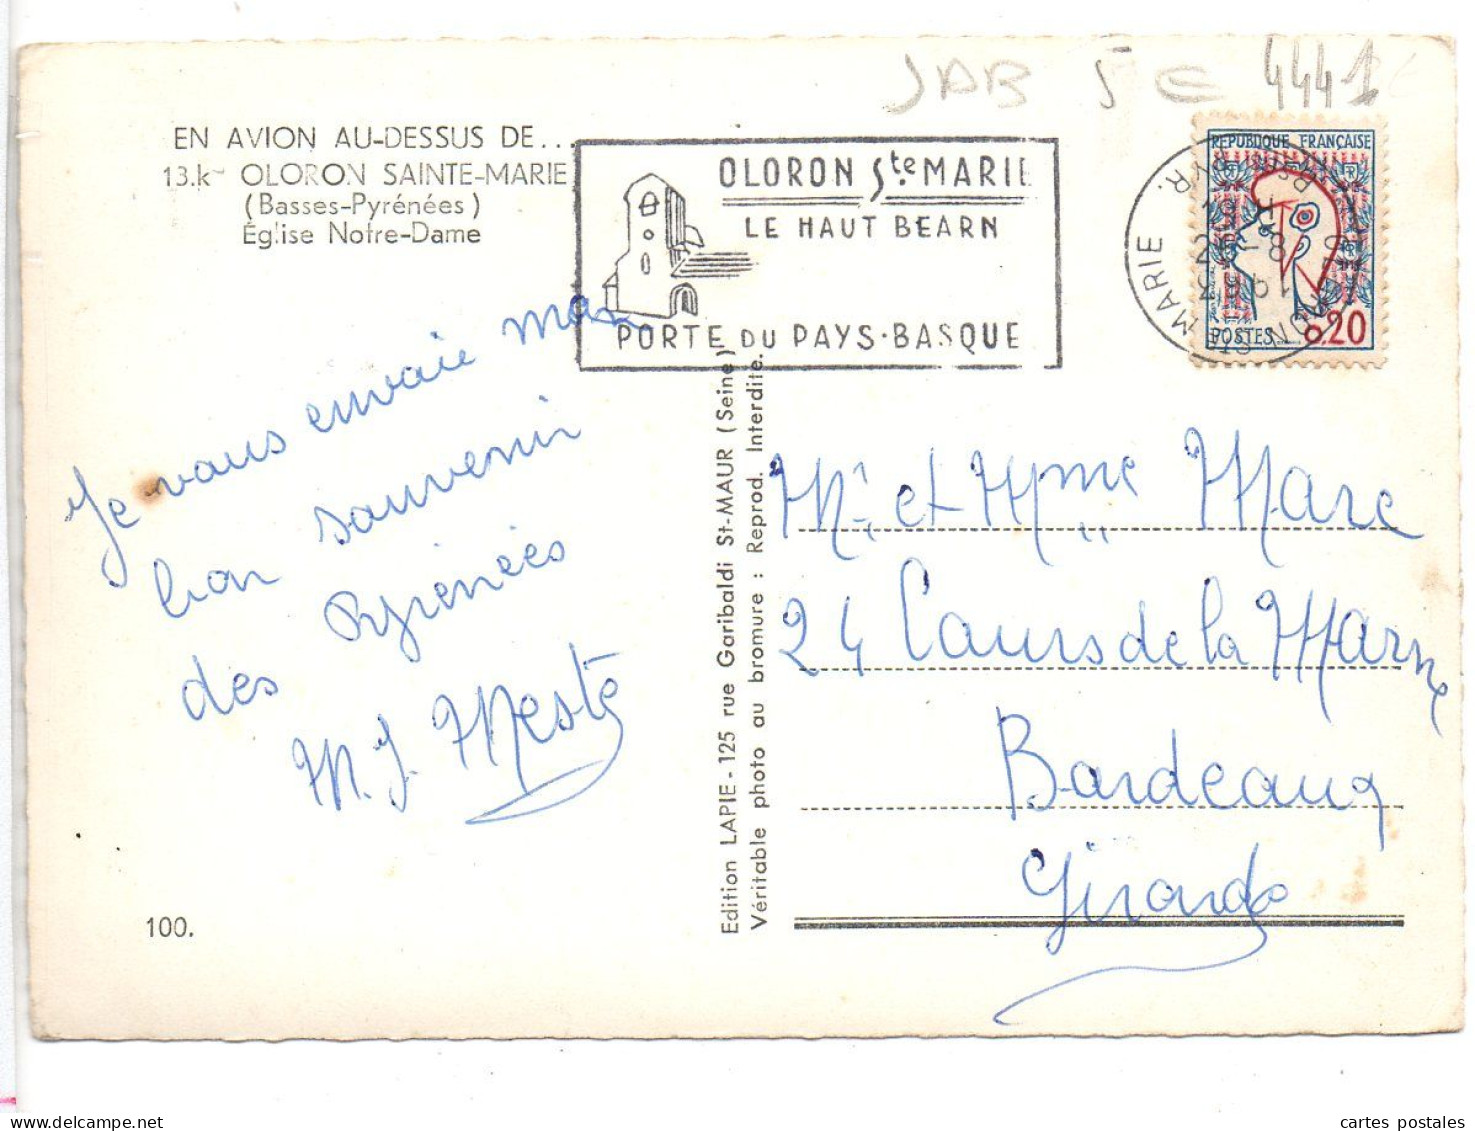 JAB 5 € 4441
EN AVION AU-DESSUS DE...
13.k OLORON SAINTE-MARIE
(Basses-Pyrénées)
Église Notre-Dame
OLORON Ste MARIE
LE HAUT BEARN
PORTE DU PAYS-BASQUE
REPUBLIQUE FRANÇAISE
POSTES 0.20
OLORON STE MARIE
Je vous envoie mon
bon souvenir
des Pyrénées
M. J. Mesté
100.
Edition LAPIE - 125 rue Garibaldi St-MAUR (Seine)
Véritable photo au bromure : Reprod. Interdite.
Mr. et Mme Marc
24 Cours de la Marne
Bordeaux
Gironde
cartes postales